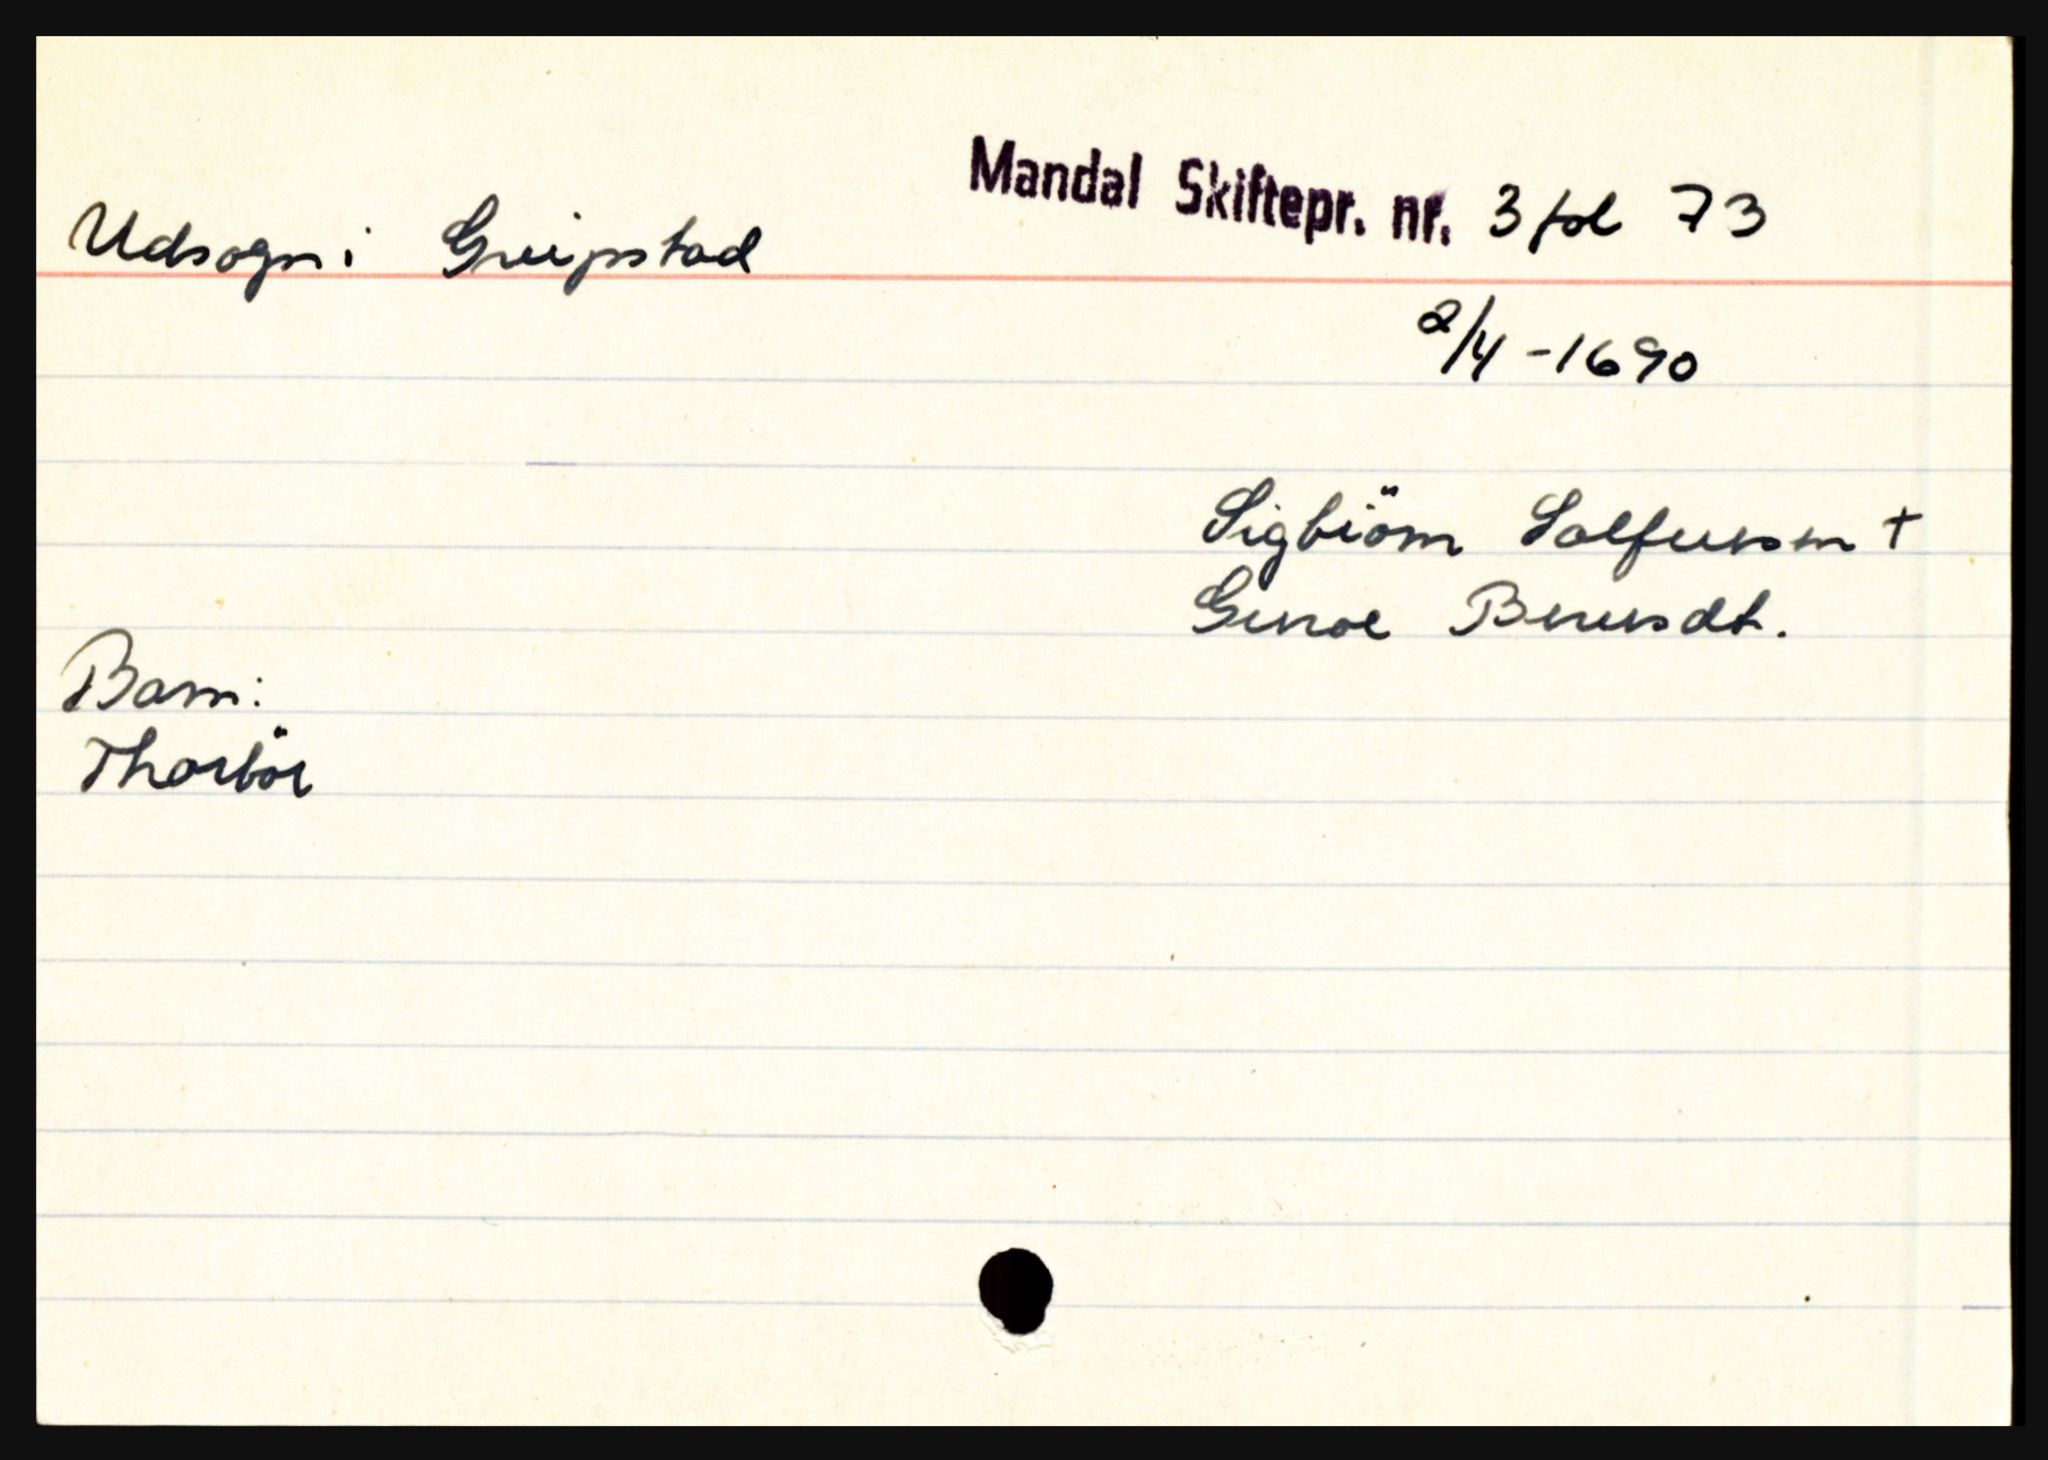 Mandal Skiftepr. nr. 3 fol 73
Udsogn: Greipstad
2/4 - 1690
Sigbiörn Salfuessen +
Gunoe Beruesdt.
Barn:
Thorbör